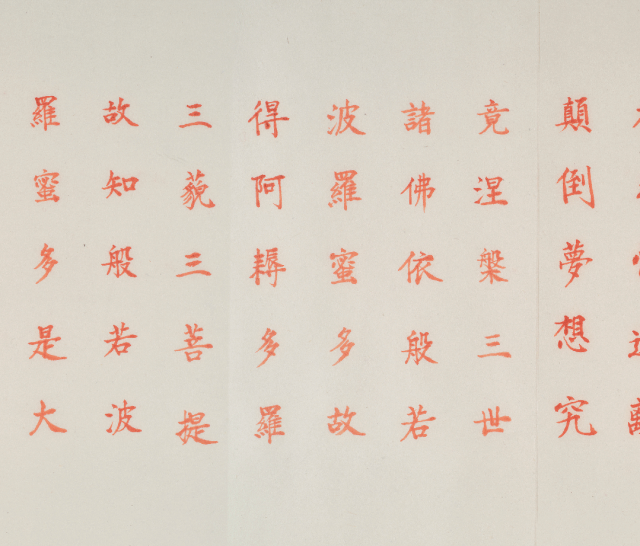 顛倒夢想究
竟涅槃三世
諸佛依般若
波羅蜜多故
得阿耨多羅
三藐三菩提
故知般若波
羅蜜多是大